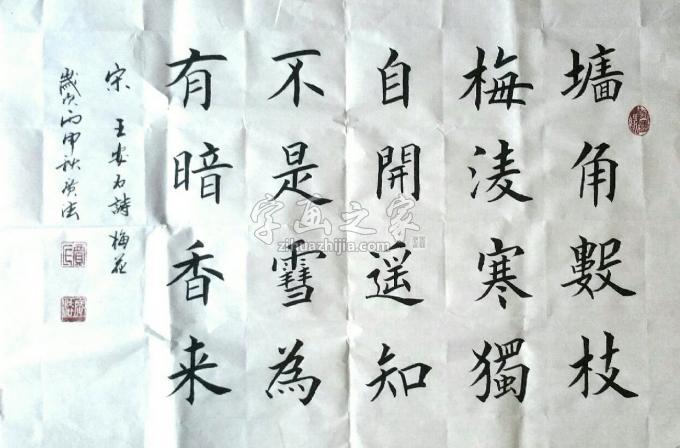 墻角數枝
梅淩寒獨
自開遥知
不是雪為
有暗香来
宋 王安石詩 梅花
歲次丙申秋
字画之家
zihuazhijia.com